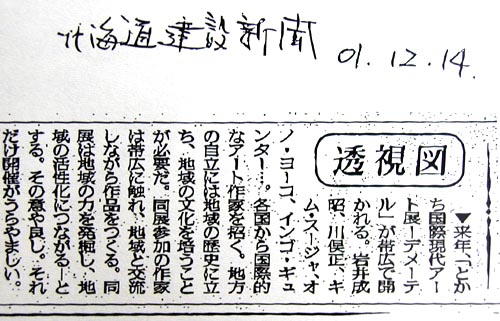 北海道建設新聞 01.12.14.
透視図
▼来年、「とか
ち国際現代アー
ト展ーデメーテ
ル」が帯広で開
かれる。岩井成
昭、川俣正、キ
ム・スージャ、オ
ノ・ヨーコ、インゴ・ギュ
ンター…。各国から国際的
なアート作家を招く。地方
の自立には地域の歴史に立
ち、地域の文化を培うこと
が必要だ。同展参加の作家
は帯広に触れ、地域と交流
しながら作品をつくる。同
展は地域の力を発掘し、地
域の活性化につながる―と
する。その意や良し。それ
だけ開催がうらやましい。